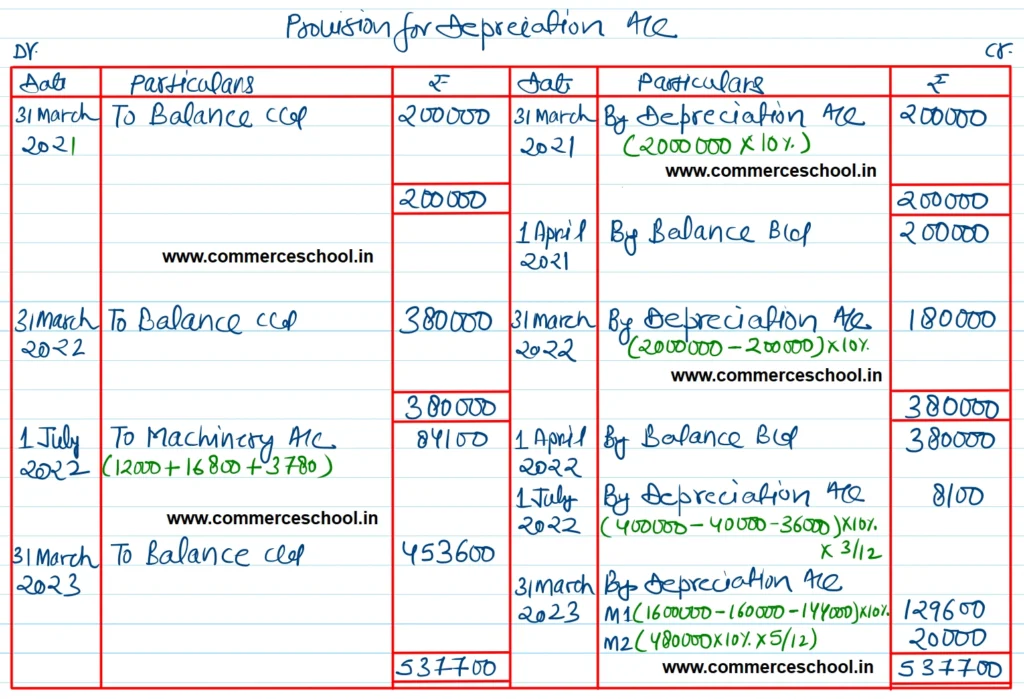 Provision for Depreciation A/c
Dr. Cr.
Date Particulars ₹ Date Particulars ₹
31 March To Balance c/d 200000 31 March By Depreciation A/c 200000
2021 2021 (2000000 x 10%)
www.commerceschool.in
200000 200000
1 April By Balance B/d 200000
2021
www.commerceschool.in
31 March To Balance c/d 380000 31 March By Depreciation A/c 180000
2022 2022 (2000000 - 200000) x 10%
www.commerceschool.in
380000 380000
1 July To Machinery A/c 84100 1 April By Balance B/d 380000
2022 (12000 + 16800 + 3780) 2022
1 July By Depreciation A/c 8100
www.commerceschool.in
2022 (400000 - 40000 - 36000) x 10%
x 3/12
31 March To Balance c/d 453600
2023
31 March By Depreciation A/c
2023 M1 (1600000 - 160000 - 144000) x 10% 129600
M2 (480000 x 10% x 5/12) 20000
www.commerceschool.in
537700 537700